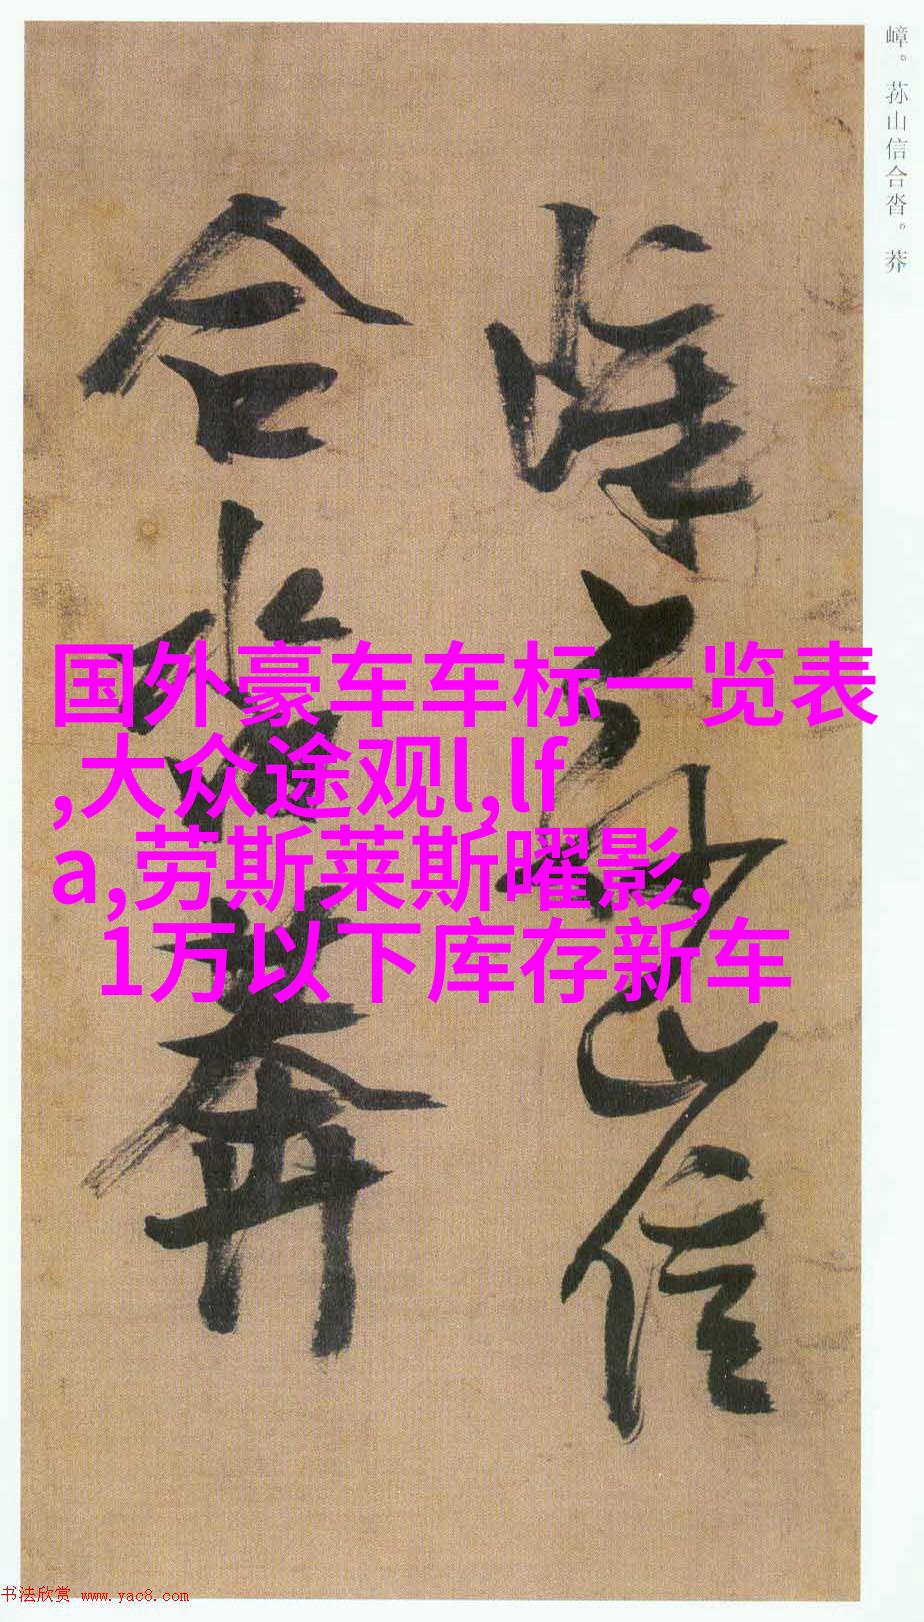 嶂。荪山信合沓。莽
嶂荪山信
合沓莽
国外豪车车标一览表
,大众途观l,lf
a,劳斯莱斯曜影,
1万以下库存新车
书法欣赏 www.yac8.com